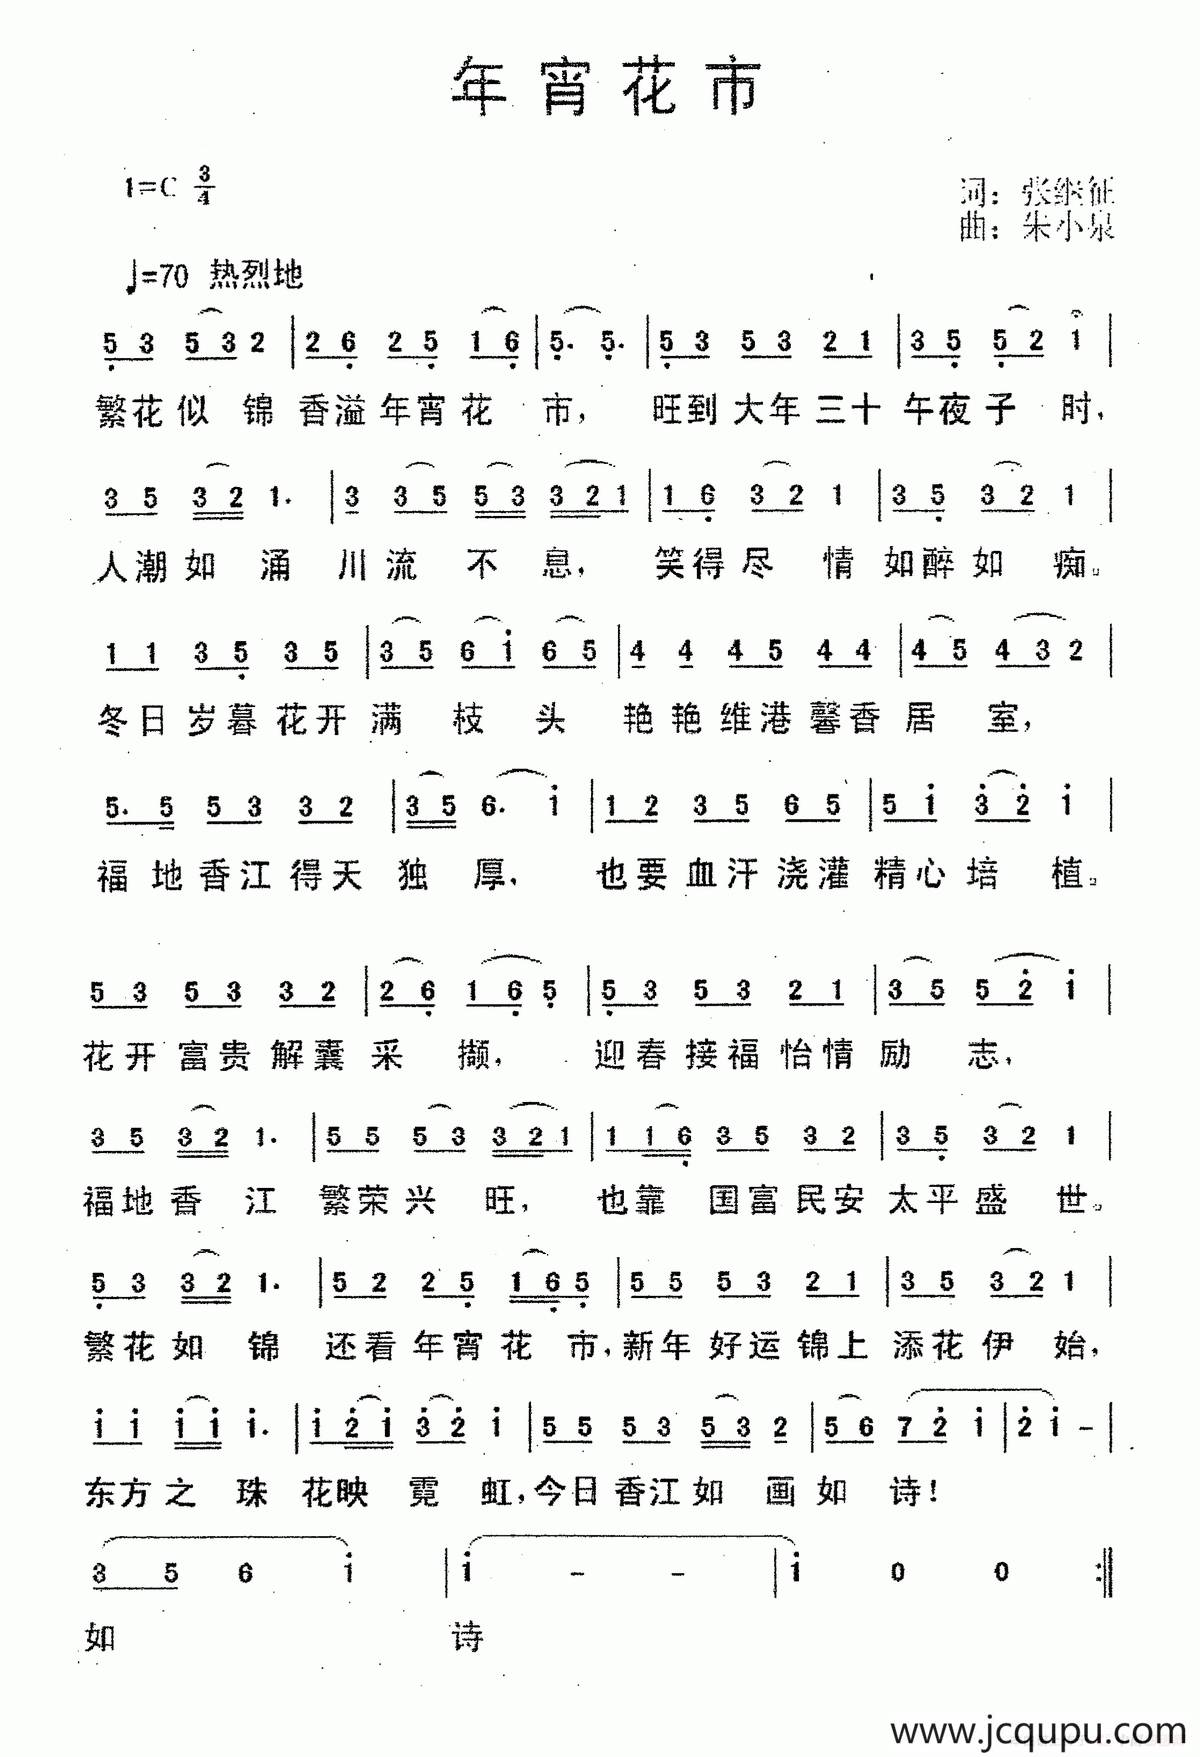 年宵花市
1=C 3/4
词：张继征
曲：朱小泉
♩=70 热烈地
5 3 5 3 2 | 2 6 2 5 1 6 | 5. 5. | 5 3 5 3 2 1 | 3 5 5 2 1 |
繁花似锦香溢年宵花市，旺到大年三十午夜子时，
3 5 3 2 1. | 3 3 5 5 3 3 2 1 | 1 6 3 2 1 | 3 5 3 2 1 |
人潮如涌川流不息，笑得尽情如醉如痴。
1 1 3 5 3 5 | 3 5 6 i 6 5 | 4 4 4 5 4 4 | 4 5 4 3 2 |
冬日岁暮花开满枝头艳艳维港馨香居室，
5. 5 5 3 3 2 | 3 5 6. i | 1 2 3 5 6 5 | 5 i 3 2 i |
福地香江得天独厚，也要血汗浇灌精心培植。
5 3 5 3 3 2 | 2 6 1 6 5 | 5 3 5 3 2 1 | 3 5 5 2 i |
花开富贵解囊采撷，迎春接福怡情励志，
3 5 3 2 1. | 5 5 5 3 3 2 1 | 1 1 6 3 5 3 2 | 3 5 3 2 1 |
福地香江繁荣兴旺，也靠国富民安太平盛世。
5 3 3 2 1. | 5 2 2 5 1 6 5 | 5 5 5 3 2 1 | 3 5 3 2 1 |
繁花如锦还看年宵花市，新年好运锦上添花伊始，
i i i i i. | i 2 i 3 2 i | 5 5 5 3 5 3 2 | 5 6 7 2 i | 2 i – |
东方之珠花映霓虹，今日香江如画如诗！
3 5 6 i | i – – | i 0 0 :||
如诗
www.jcqupu.com